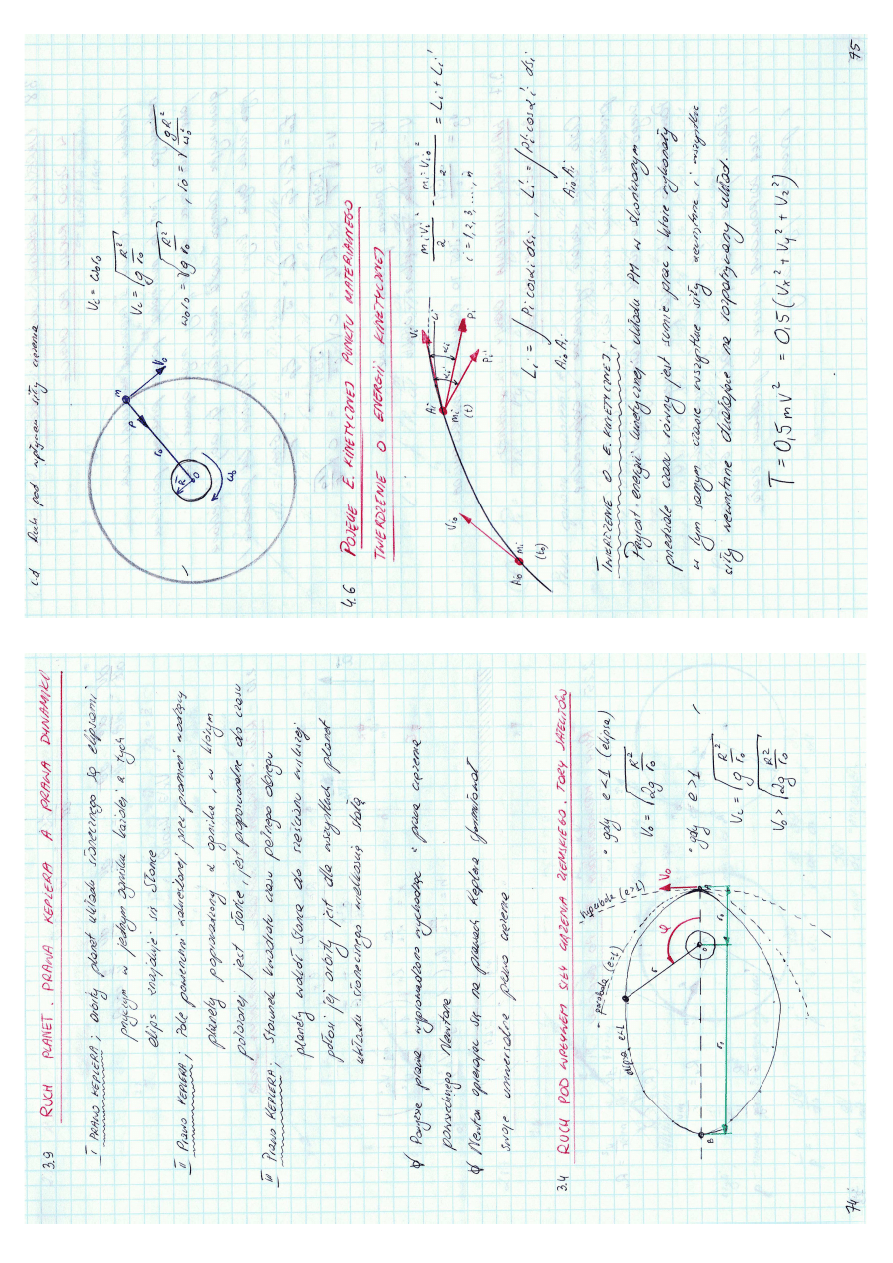 3.9 RUCH PLANET. PRAWA KEPLERA A PRAWA DYNAMIKI
I PRAWO KEPLERA; orbity planet układu słonecznego są elipsami
przyczym w jednym ognisku każdej z tych
elips znajduje się Słońce
II PRAWO KEPLERA; Pole powierzchni zakreślonej przez promień wodzący
planety poprowadzony z ogniska, w którym
położone jest słońce, jest proporcjonalne do czasu
III PRAWO KEPLERA; Stosunek kwadratu czasu pełnego obiegu
planety wokół słońca do sześcianu większej
półosi jej orbity jest dla wszystkich planet
układu słonecznego wielkością stałą
Powyższe prawa wyprowadzono wychodząc z prawa ciążenia
powszechnego Newtona
Newton opierając się na prawach Keplera sformułował
swoje uniwersalne prawo ciążenia
3.4 RUCH POD WPŁYWEM SIŁY CIĄŻENIA ZIEMSKIEGO. TORY SATELITÓW
parabola (e=1)
hiperbola (e>1)
elipsa e<1
V₀
φ
r
O
A
B
r₁
r₁
gdy e<1 (elipsa)
V₀ = √(2g R²/r₀)
gdy e>1
V_c = √(g R²/r₀)
V₀ > √(2g R²/r₀)
74
c.d Ruch pod wpływem siły ciążenia
m
V₀
P
r₀
R
O
ω₀
V_c = ω₀r₀
V_c = √(g R²/r₀)
ω₀r₀ = √(g R²/r₀), r₀ = ∛(gR²/ω₀²)
4.6 POJĘCIE E. KINETYCZNEJ PUNKTU MATERIALNEGO
TWIERDZENIE O ENERGII KINETYCZNEJ
A_i0
m_i
(t₀)
V_i0
A_i
m_i
(t)
V_i
α_i
α_i'
P_i
P_i'
m_iV_i²/2 - m_iV_i0²/2 = L_i + L_i'
i = 1, 2, 3, ...., n
L_i = ∫ P_i cosα_i ds_i , L_i' = ∫ P_i' cosα_i' ds_i
A_i0 A_i A_i0 A_i
TWIERDZENIE O E. KINETYCZNEJ;
Przyrost energii kinetycznej układu PM w skończonym
przedziale czasu równy jest sumie prac, które wykonały
w tym samym czasie wszystkie siły zewnętrzne i wszystkie
siły wewnętrzne działające na rozpatrywany układ.
T = 0,5mV² = 0,5(Vx² + Vy² + Vz²)
75